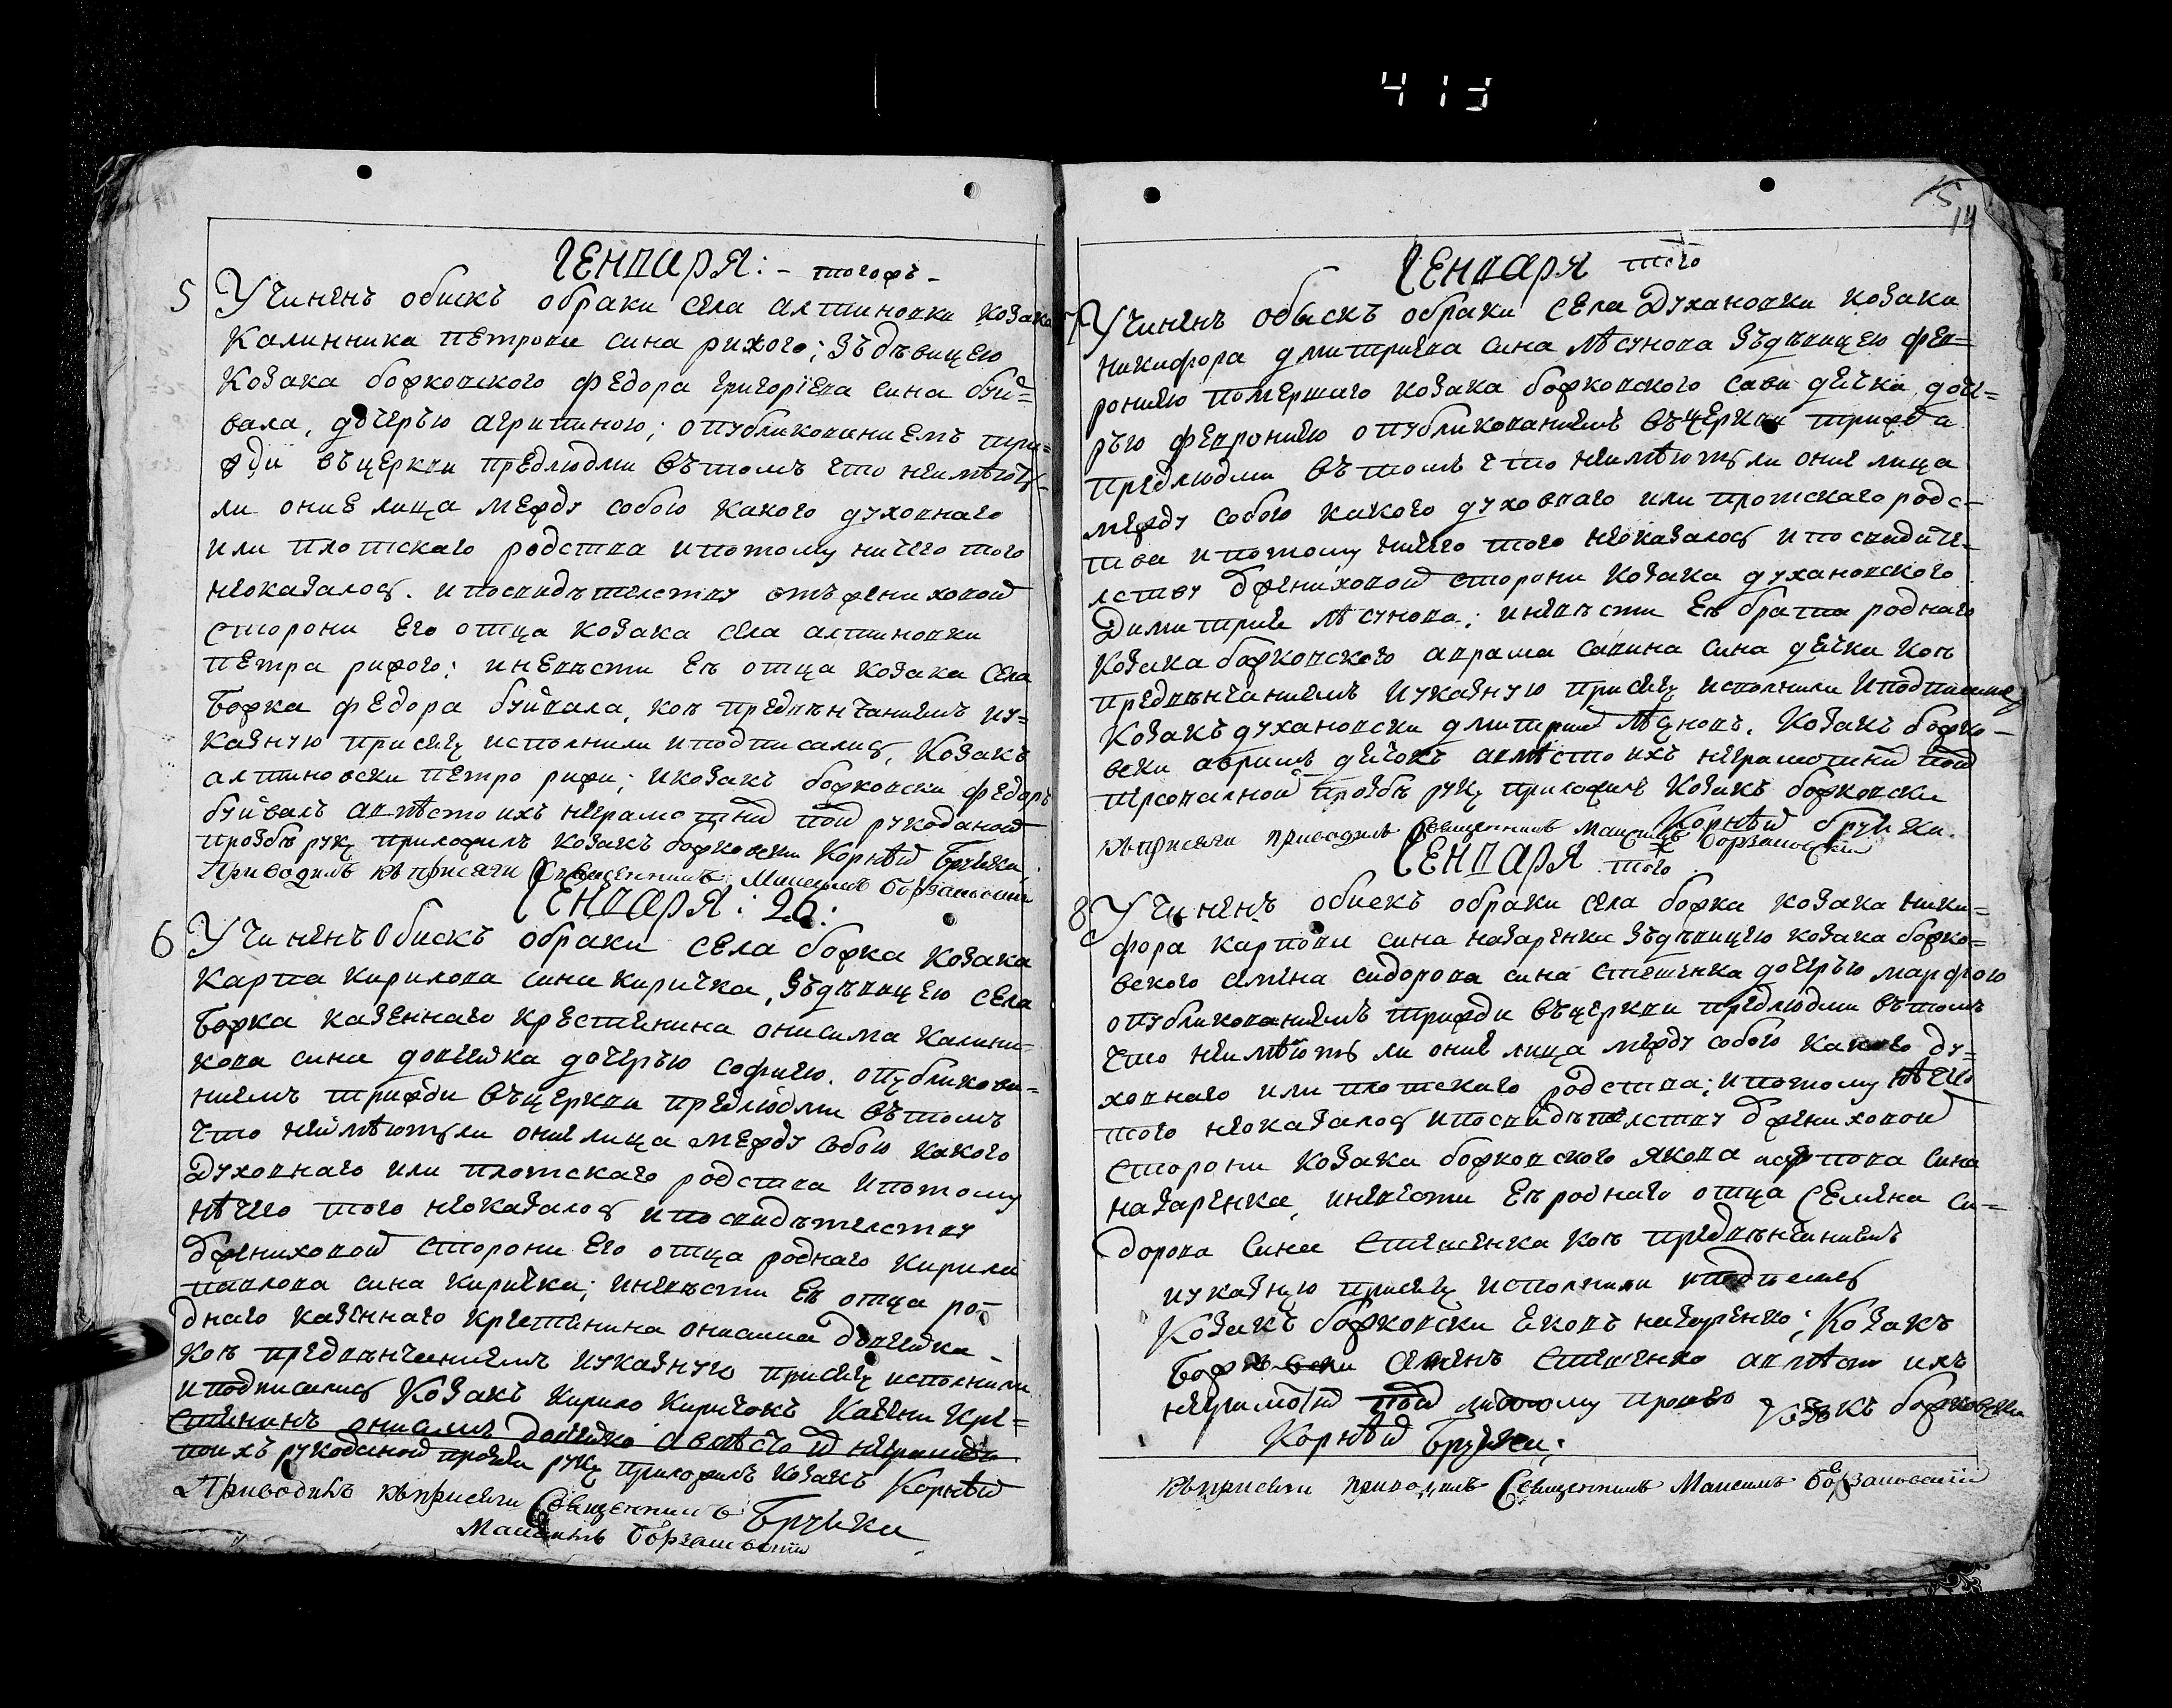 413
15
14
Генваря: - тогожъ -
5 Учиненъ обискъ обраки села алтиновки козака
Калинника петрова сина рижого; зъдѣвицею
Козака божковского федора григоріева сина буй=
вала, дочерѣю агрипиною; опубликованиемъ три=
жди въцеркви предлюдми вътомъ что неимѣютъ
ли оние лица между собою какого духовнаго
или плотскаго родства ипотому ничего того
неоказалось. ипосвидѣтелству отъ жениховой
сторони его отца козака села алтиновки
петра рижого; иневѣсти еѣ отца козака села
Божка федора буйвала, коѣ предвѣнчаниемъ иу=
казную присягу исполнили иподписались, Козакъ
алтиновски петро рижи; икозакъ божковски федоръ
буйвалъ авмѣсто ихъ неграмотний пой рукоданой
прозбѣ руку приложилъ козакъ божковски Корнѣй Бруйка.
Приводилъ къприсяги Священникъ Максимъ Борзаковскій
Генваря: 26:
6 Учиненъ обискъ обраки села божка козака
карпа кирилова сина киричка, зъдѣвицею села
Божка казеннаго крестянина онисима калини=
кова сина довгейка дочерѣю софиею. опубликова=
ниемъ трижди въцеркви предлюдми вътомъ
что неимѣютъ ли оние лица между собою какого
Духовнаго или плотскаго родства ипотому
нѣчего того неоказалось ипосвидѣтелству
ѿжениховой сторони его отца роднаго кирила
павлова сина киричка; иневѣсти еѣ отца ро=
днаго казеннаго крестянина онисима довгейка -
коѣ предвѣнчаниемъ иуказную присягу исполнили
иподписались Козакъ Кирило Киричокъ Казени кре=
стянинъ онисимъ довгейко авмѣсто
поихъ рукоданой прозби руку приложилъ козакъ Корнѣй
Приводилъ къприсяги Священникъ Бруйка
Максимъ Борзаковскій
Генваря того
7 Учиненъ обыскъ обраки села Духановки козака
никифора дмитриева сина лѣсунова зъдѣвицею фев=
рониею помершаго козака божковского сави дейка доче=
рѣю феврониею опубликованиемъ въцеркви трижда
предлюдми вътомъ что неимѣютъ ли оние лица
между собою какого духовнаго или плотскаго родс=
тва ипотому ничего того неоказалось ипосвидѣте=
лству ѿжениховой сторони козака духановского
Димитрие лѣсунова; иневѣсти еѣ брата роднаго
козака божковского аврама савина сина дейка коѣ
предвѣнчаниемъ иуказную присягу исполнили иподписались
Козакъ духановски дмитрий лѣсуновъ. Козакъ божко-
вски аврамъ дейокъ авмѣсто ихъ неграмотний пой
персоналной прозбѣ руку приложилъ козакъ божковски
Корнѣй бруйка.
къприсяги приводилъ Священникъ Максимъ Борзаковскій
Генваря того
8 Учиненъ обискъ обраки села божка козака ники=
фора карпова сина назаренка зъдѣвицею козака божко=
вского семена сидорова сина стешенка дочерѣю марфою
опубликованиемъ трижди въцеркви предлюдми вътомъ
что неимѣютъ ли оние лица между собою какого ду=
ховнаго или плотскаго родства; ипотому нѣчего
того неоказалось ипосвидѣтелству ѿжениховой
сторони козака божковского якова карпова сина
назаренка, иневести еѣ роднаго отца Семена си=
дорова сина стешенка коѣ предвѣнчаниемъ
иуказную присягу исполнили иподписались
Козакъ божковски Яковъ назаренко; Козакъ
Божковски Семенъ стешенко авмѣсто ихъ
неграмотний пой козакъ божковски
Корнѣй Бруйка;
къприсяги приводилъ Священникъ Максимъ Борзаковскій